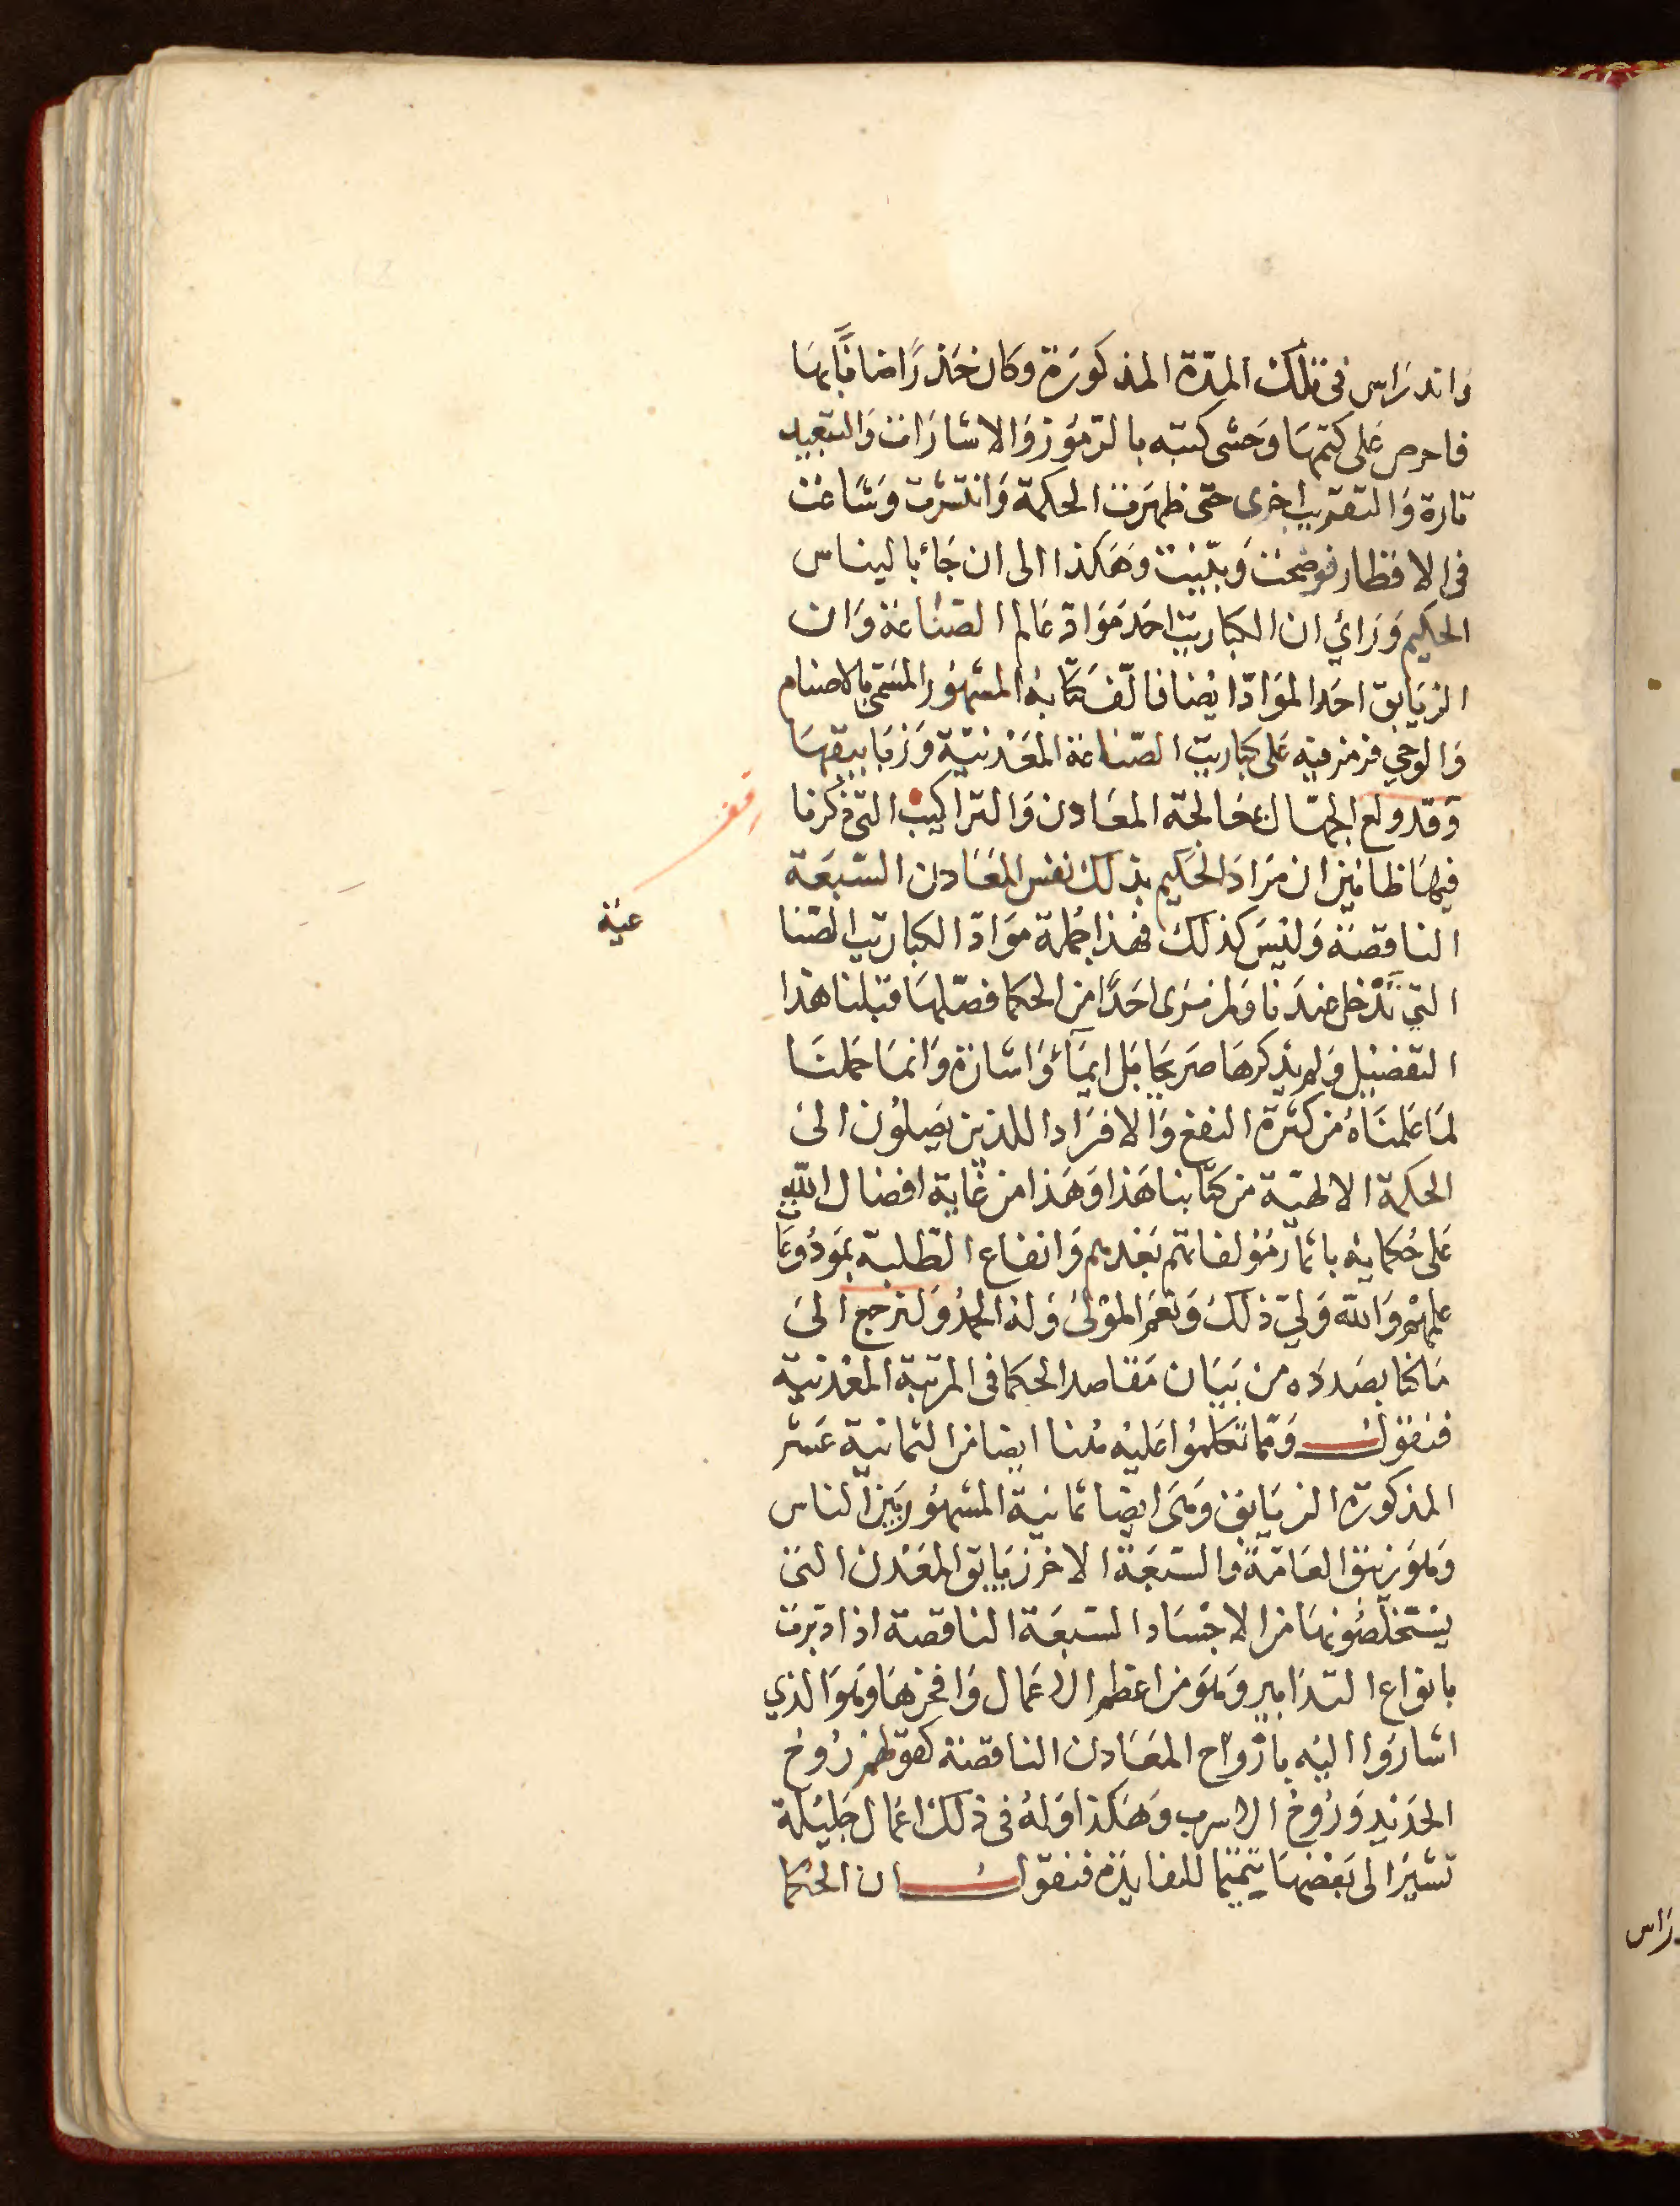 واندراس فى تلك المدّة المذكورَة وكان حَذرًا ضانًّا بهَا
فاحرص عَلى كتمهَا وَحَشى كتبه بالرّموز وَالاشارَات وَالتبعيد
تارة وَالتقريب اخرى حتى ظهرَت الحكمة وَانتشرت وشَاعَت
فى الاقطار فوضحت وَبيّنت وهَكذا الى ان جَاء باليناس
الحكيم وَرَاي ان الكبَاريت احَد مَوَادّ عَالم الصّنَاعَة وَان
الزيَابق احَد الموَادّ ايضا فالّف كتابهُ المشهوُر المسَمّى بالاصنام
وَالوحي فرمز فيه عَلى كباريت الصّناعة المعَدنيّة وَزيَابيقهَا
وقد ولع الجهّال بمعَالجة المعَادن وَالتراكيب التى ذكرنا
فيهَا ظانين ان مرَادَ الحكيم بذلك نفس المعَادن السّبعَة
الناقصَة وَليسَ كذلك فهذا جُملة موَادّ الكباريت الصّنا
عيّة
التي تَدْخل عندَنا وَلم نرَى احَدًا من الحكما فصّلهَا قبلنا هذا
التفضيل وَلم يذكرهَا صَريحًا بَل ايمَآء وَاشارَة وَانمَا حملنَا
لمَا عَلمنَاهُ من كثرَة النفع وَالافرَاد اللذين يَصلوُن الىَ
الحكمة الالهيّة من كتابنا هَذا وَهَذا من غَاية افضال اللّه
عَلى حُكمايه باثار مؤلفاتهم بَعْدهم وَانفاع الطّلبة بموَدُوعَا
علمهمْ وَاللّه وَليّ ذلكَ وَنعمَ الموْلىَ وَلهُ الحمدُ وَلنرجع الىَ
مَا كنّا بصَددَه من بَيَان مَقاصد الحكما فى المرتبة المعْدنيّة
فنقوُل وَممّا تكلموُا عَليْه هُنا ايضا من الثمانية عَشر
المذكورَة الزيَابق وَهىَ ايضا ثمانيَة المشهوُر بَين الناس
وَهوَ زيبَق العَامَّة وَالسّبعَة الاخر زيَابق المعَدن التى
يسْتخلّصُونهَا من الاجْسَاد السّبعَة الناقصة اذا دبّرت
بانوَاع التدَابير وَهوَ من اعظم الاعمَال وَافخرهَا وَهوَ الذي
اشارَوا اليْه بارْوَاح المعَادن الناقصَة كقولهم رُوح
الحَديد وَرُوح الاسرب وَهَكذا وَلهُ فى ذلكَ اعمَال جَليْلة
نشيرَ الى بَعْضهَا تتميمًا للفايدَة فنقوُل ان الحُكما
رَاس